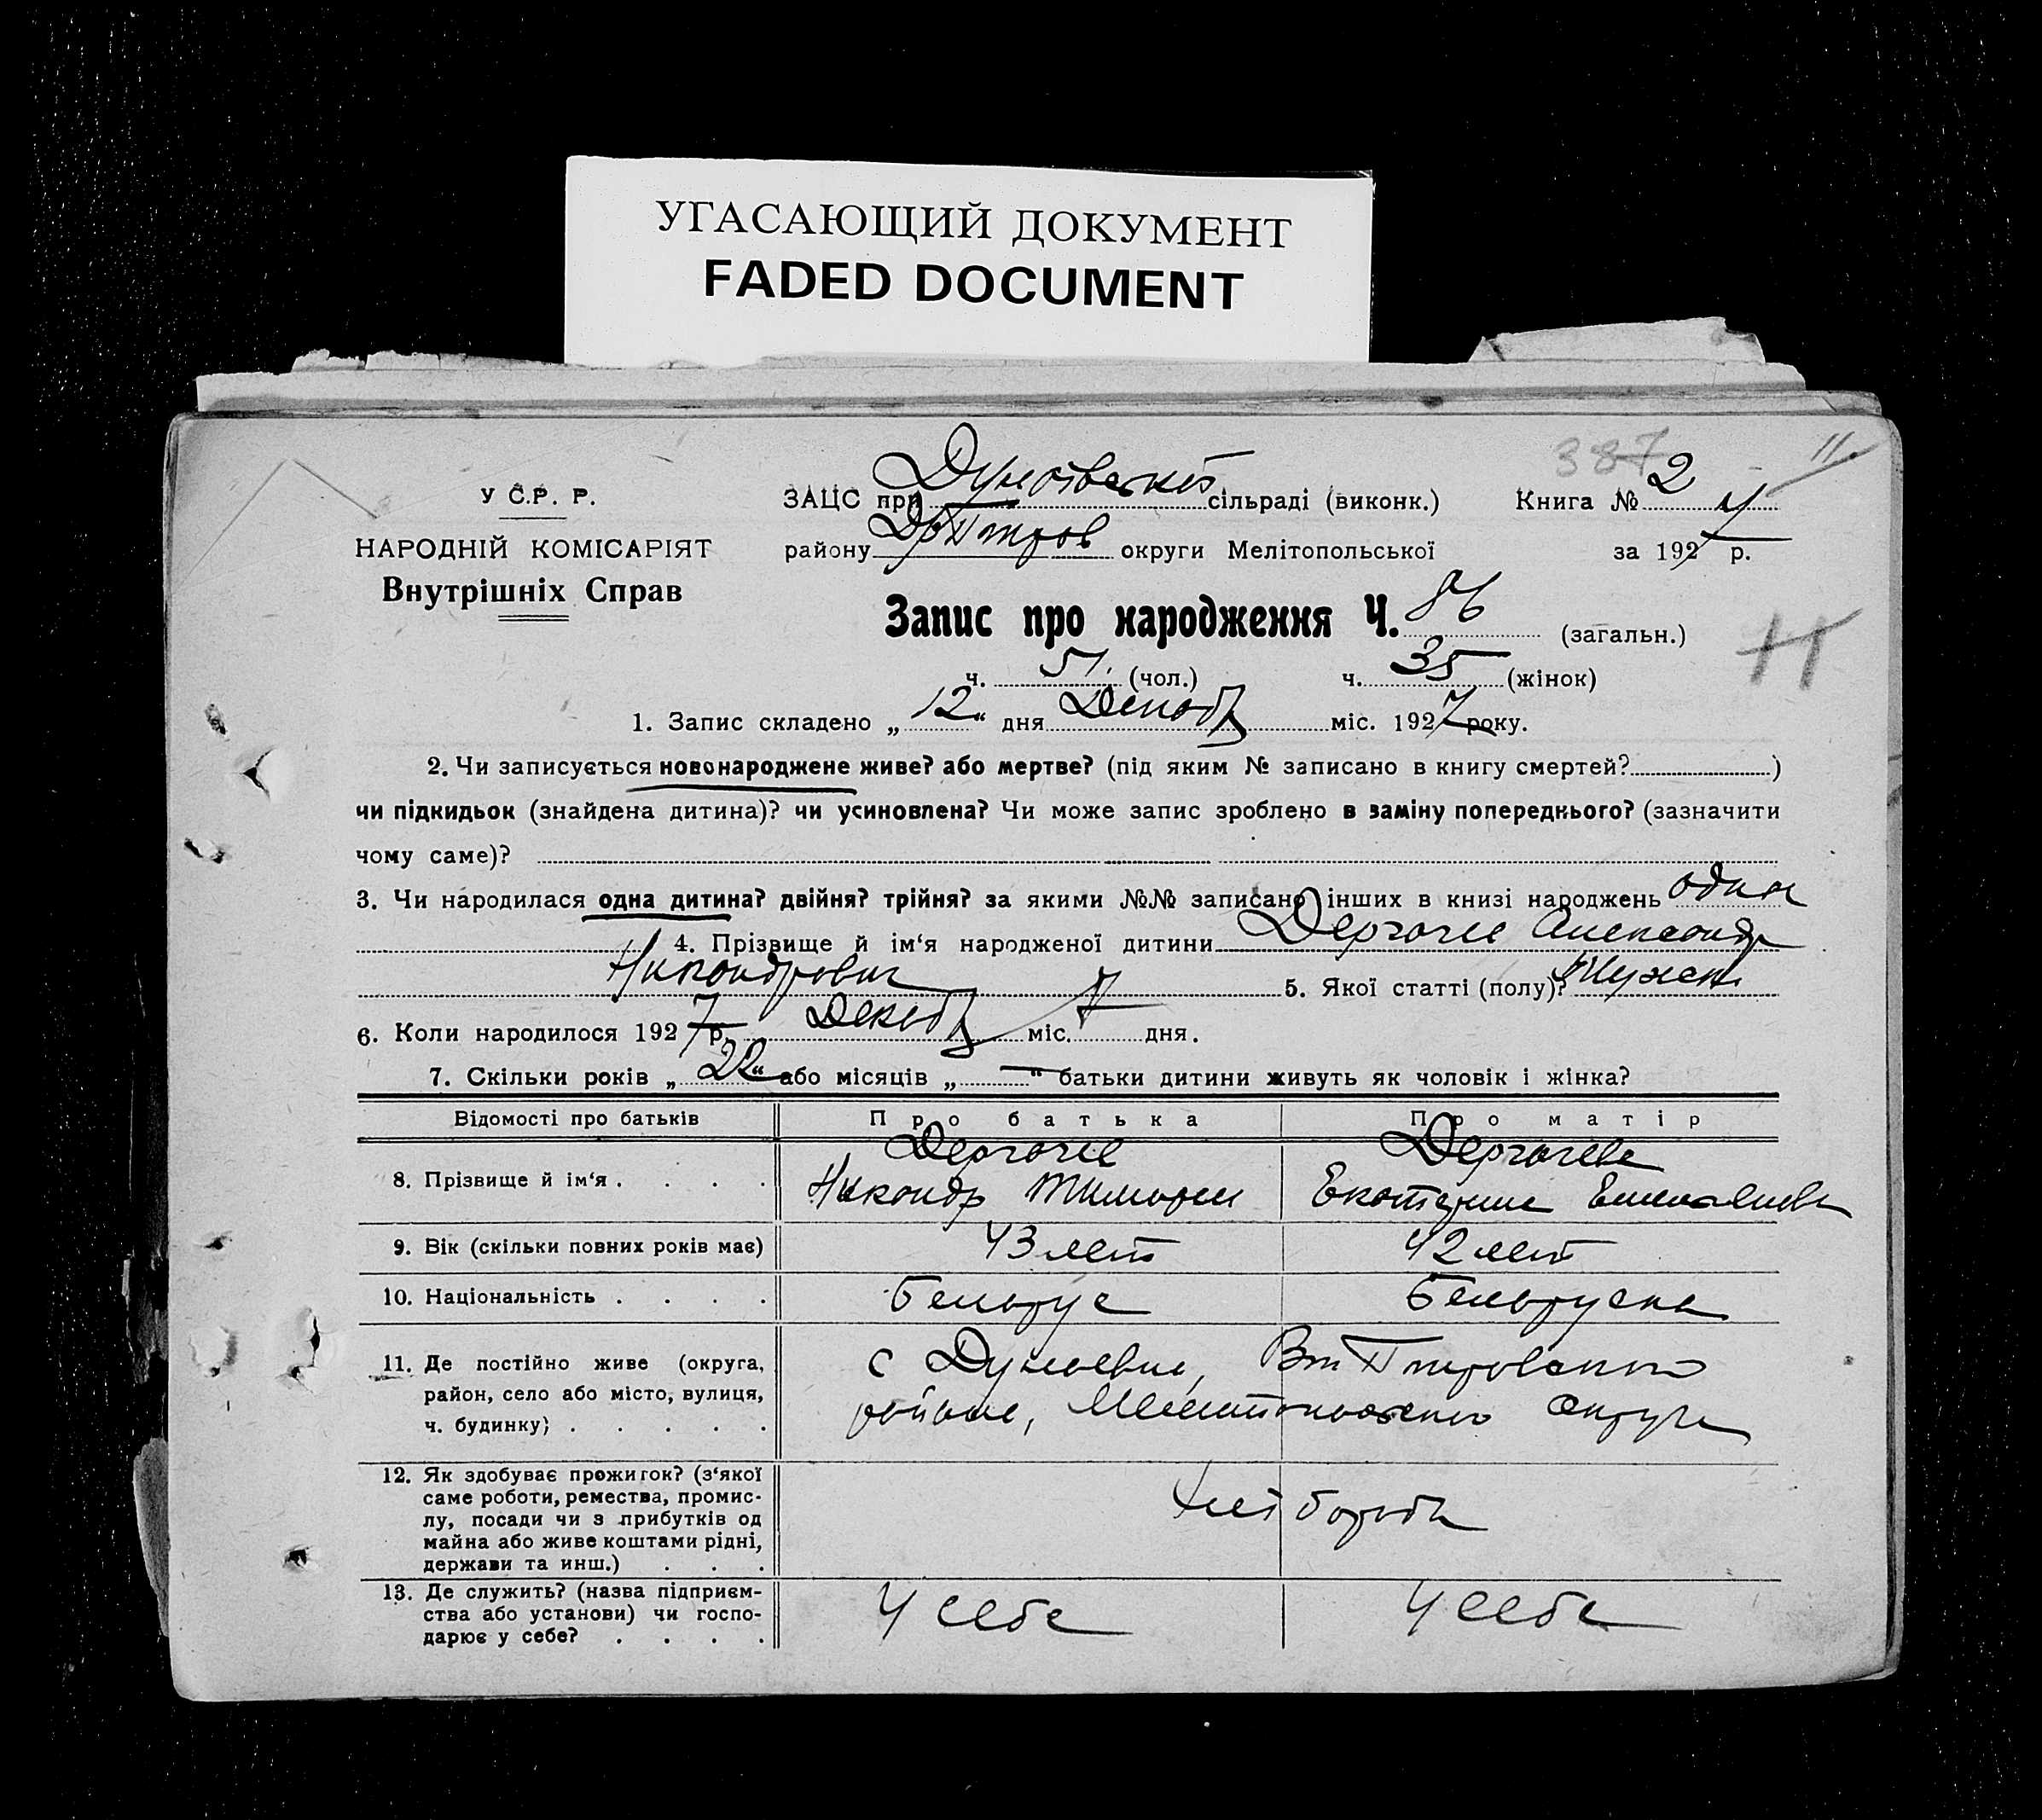 УГАСАЮЩИЙ ДОКУМЕНТ
FADED DOCUMENT
387 11.
У С.Р. Р.
ЗАЦС при сільраді (виконк.) Книга № 2
НАРОДНІЙ КОМІСАРІЯТ
району округи Мелітопольської за 1927 р.
Внутрішніх Справ
Запис про народження Ч. 86 (загальн.)
ч. 51 (чол.) ч. 35 (жінок)
11
1. Запис складено „12“ дня Декабр міс. 1927 року.
2. Чи записується новонароджене живе? або мертве? (під яким № записано в книгу смертей?)
чи підкидьок (знайдена дитина)? чи усиновлена? Чи може запис зроблено в заміну попереднього? (зазначити
чому саме)?
3. Чи народилася одна дитина? двійня? трійня? за якими №№ записано інших в книзі народжень один
4. Прізвище й ім‘я народженої дитини Дергачев Александр
Никандрович 5. Якої статті (полу)? Мужск
6. Коли народилося 1927 р. Декабр міс. 7 дня.
7. Скільки років „22“ або місяців „—“ батьки дитини живуть як чоловік і жінка?
Відомості про батьків Про батька Про матір
8. Прізвище й ім‘я . . . . Дергачев Дергачева
Никандр Тимофеев Екатерина Емельянова
9. Вік (скільки повних років має) 43 лет 42 лет
10. Національність . . . . Белорус Белоруска
11. Де постійно живе (округа, с Дунаевка, Вт Петровского
район, село або місто, вулиця, района, Мелитопольского Округа
ч. будинку) . . . . .
12. Як здобуває прожиток? (з‘якої
саме роботи, ремества, промис-
лу, посади чи з прибутків од хлебороб
майна або живе коштами рідні,
держави та инш.) . . .
13. Де служить? (назва підприєм-
ства або установи) чи госпо- У себя У себя
дарює у себе? . . . .